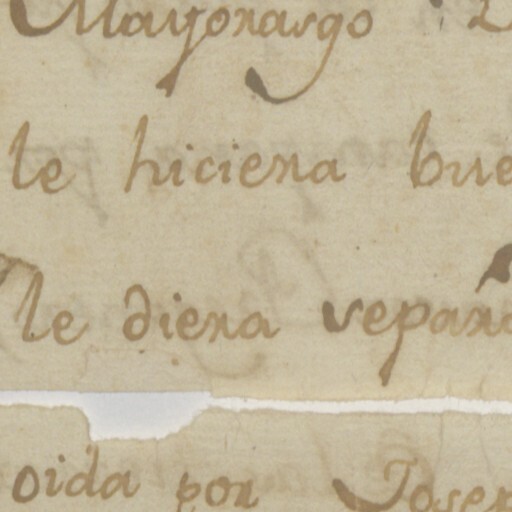 Mayorasgo
le hiciera bue
le diera separa
oida por Josep